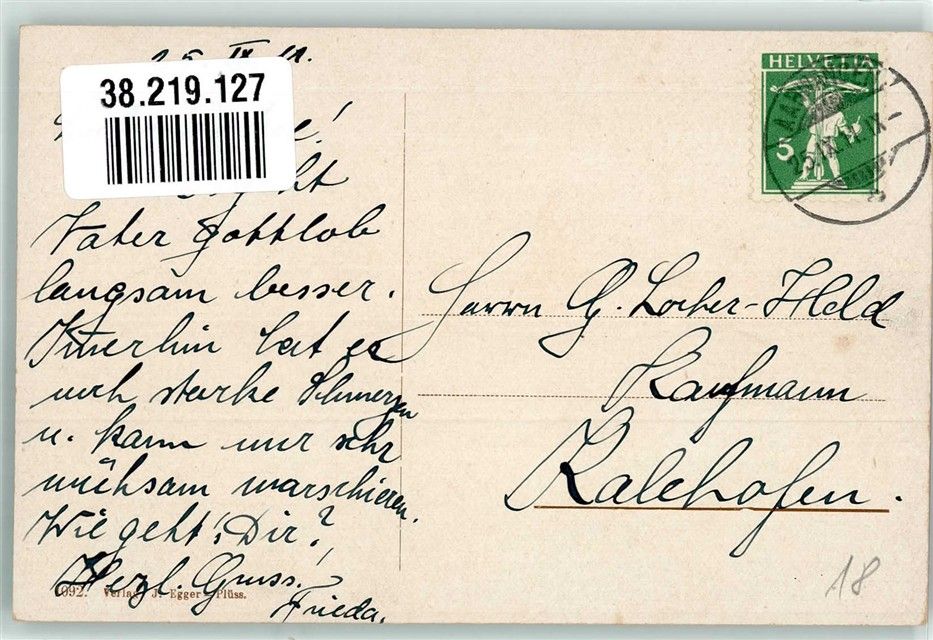 25. IX. 11.
38.219.127
geht
Vater Gottlob
langsam besser.
Imerhin hat er
noch starke Schmerzen
u. kann nur sehr
mühsam marschieren.
Wie geht's Dir?
Herzl. Gruss!
Frieda.
HELVETIA
5
25.IX.11.IX-
Herrn G. Locher-Held
Kaufmann
Kalchofen.
18
Verlag J. Egger-Plüss.